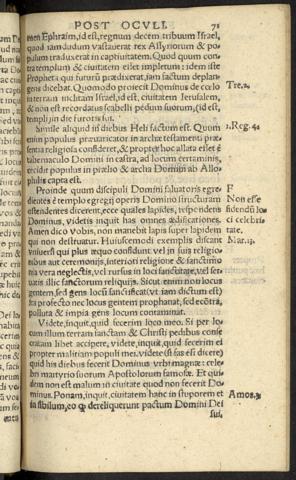 POST OCVLI. 71
men Ephraim, id est, regnum decem tribuum Israel,
quod iamdudum vastauerat rex Assyriorum & po-
pulum traduxerat in captiuitatem. Quod quum con-
tra templum & ciuitatem esset impletum: idem iste
Propheta qui futurũ prædixerat, iam factum deplan-
gens dicebat. Quomodo proiecit Dominus de cœlo Tre.2.
in terram inclitam Israel, id est, ciuitatem Ierusalem,
& nõ est recordatus scabelli pedum suorum, (id est,
templi) in die furoris sui.
Simile aliquid in diebus Heli factum est. Quum 1.Reg.4.
enim populus præuaricator in archæ testamenti præ-
sentia religiosa confideret, & propter hoc allata esset è
tabernaculo Domini in castra, ad locum certaminis,
cecidit populus in prælio & archa Domini ab Allo-
philis capta est.
Proinde quum discipuli Domini saluatoris egre- F
dientes è templo egregij operis Domino structuram Non esse
ostendentes dicerent, ecce quales lapides, respondens fidendũ lo-
Dominus, videtis inquit has omnes ædificationes. ci celebri-
Amen dico vobis, non manebit lapis super lapidem tate.
qui non destruatur. Huiuscemodi exemplis discant Mar.13.
vniuersi qui plus æquo confidunt vel in suis religio-
nibus aut ceremonijs, interiori religione & sanctimo
nia vera neglectis, vel rursus in loci sanctitate, vel ser-
uatis illic sanctorum reliquijs. Sicut enim non locus
gentem, sed gens locũ sanctificat (vt iam dictum est)
ita profecto nec locus gentem prophanat, sed ecõtra,
polluta & impia gens locum contaminat.
Videte, inquit, quid fecerim loco meo. Si per lo-
cum illum terram sanctam & Christi pedibus conse
cratam libet accipere, videte, inquit, quid fecerim ei
propter malitiam populi mei. videte (si fas est dicere)
quid his diebus fecerit Dominus vrbi magnæ: cele-
bri martyrio suorum Apostolorum famosæ. Et qui-
dem non est malum in ciuitate quod non fecerit Do-
minus. Ponam, inquit, ciuitatem hanc in stuporem et Amos.3.
in sibilum, eo q dereliquerunt pactum Domini Dei
sui,